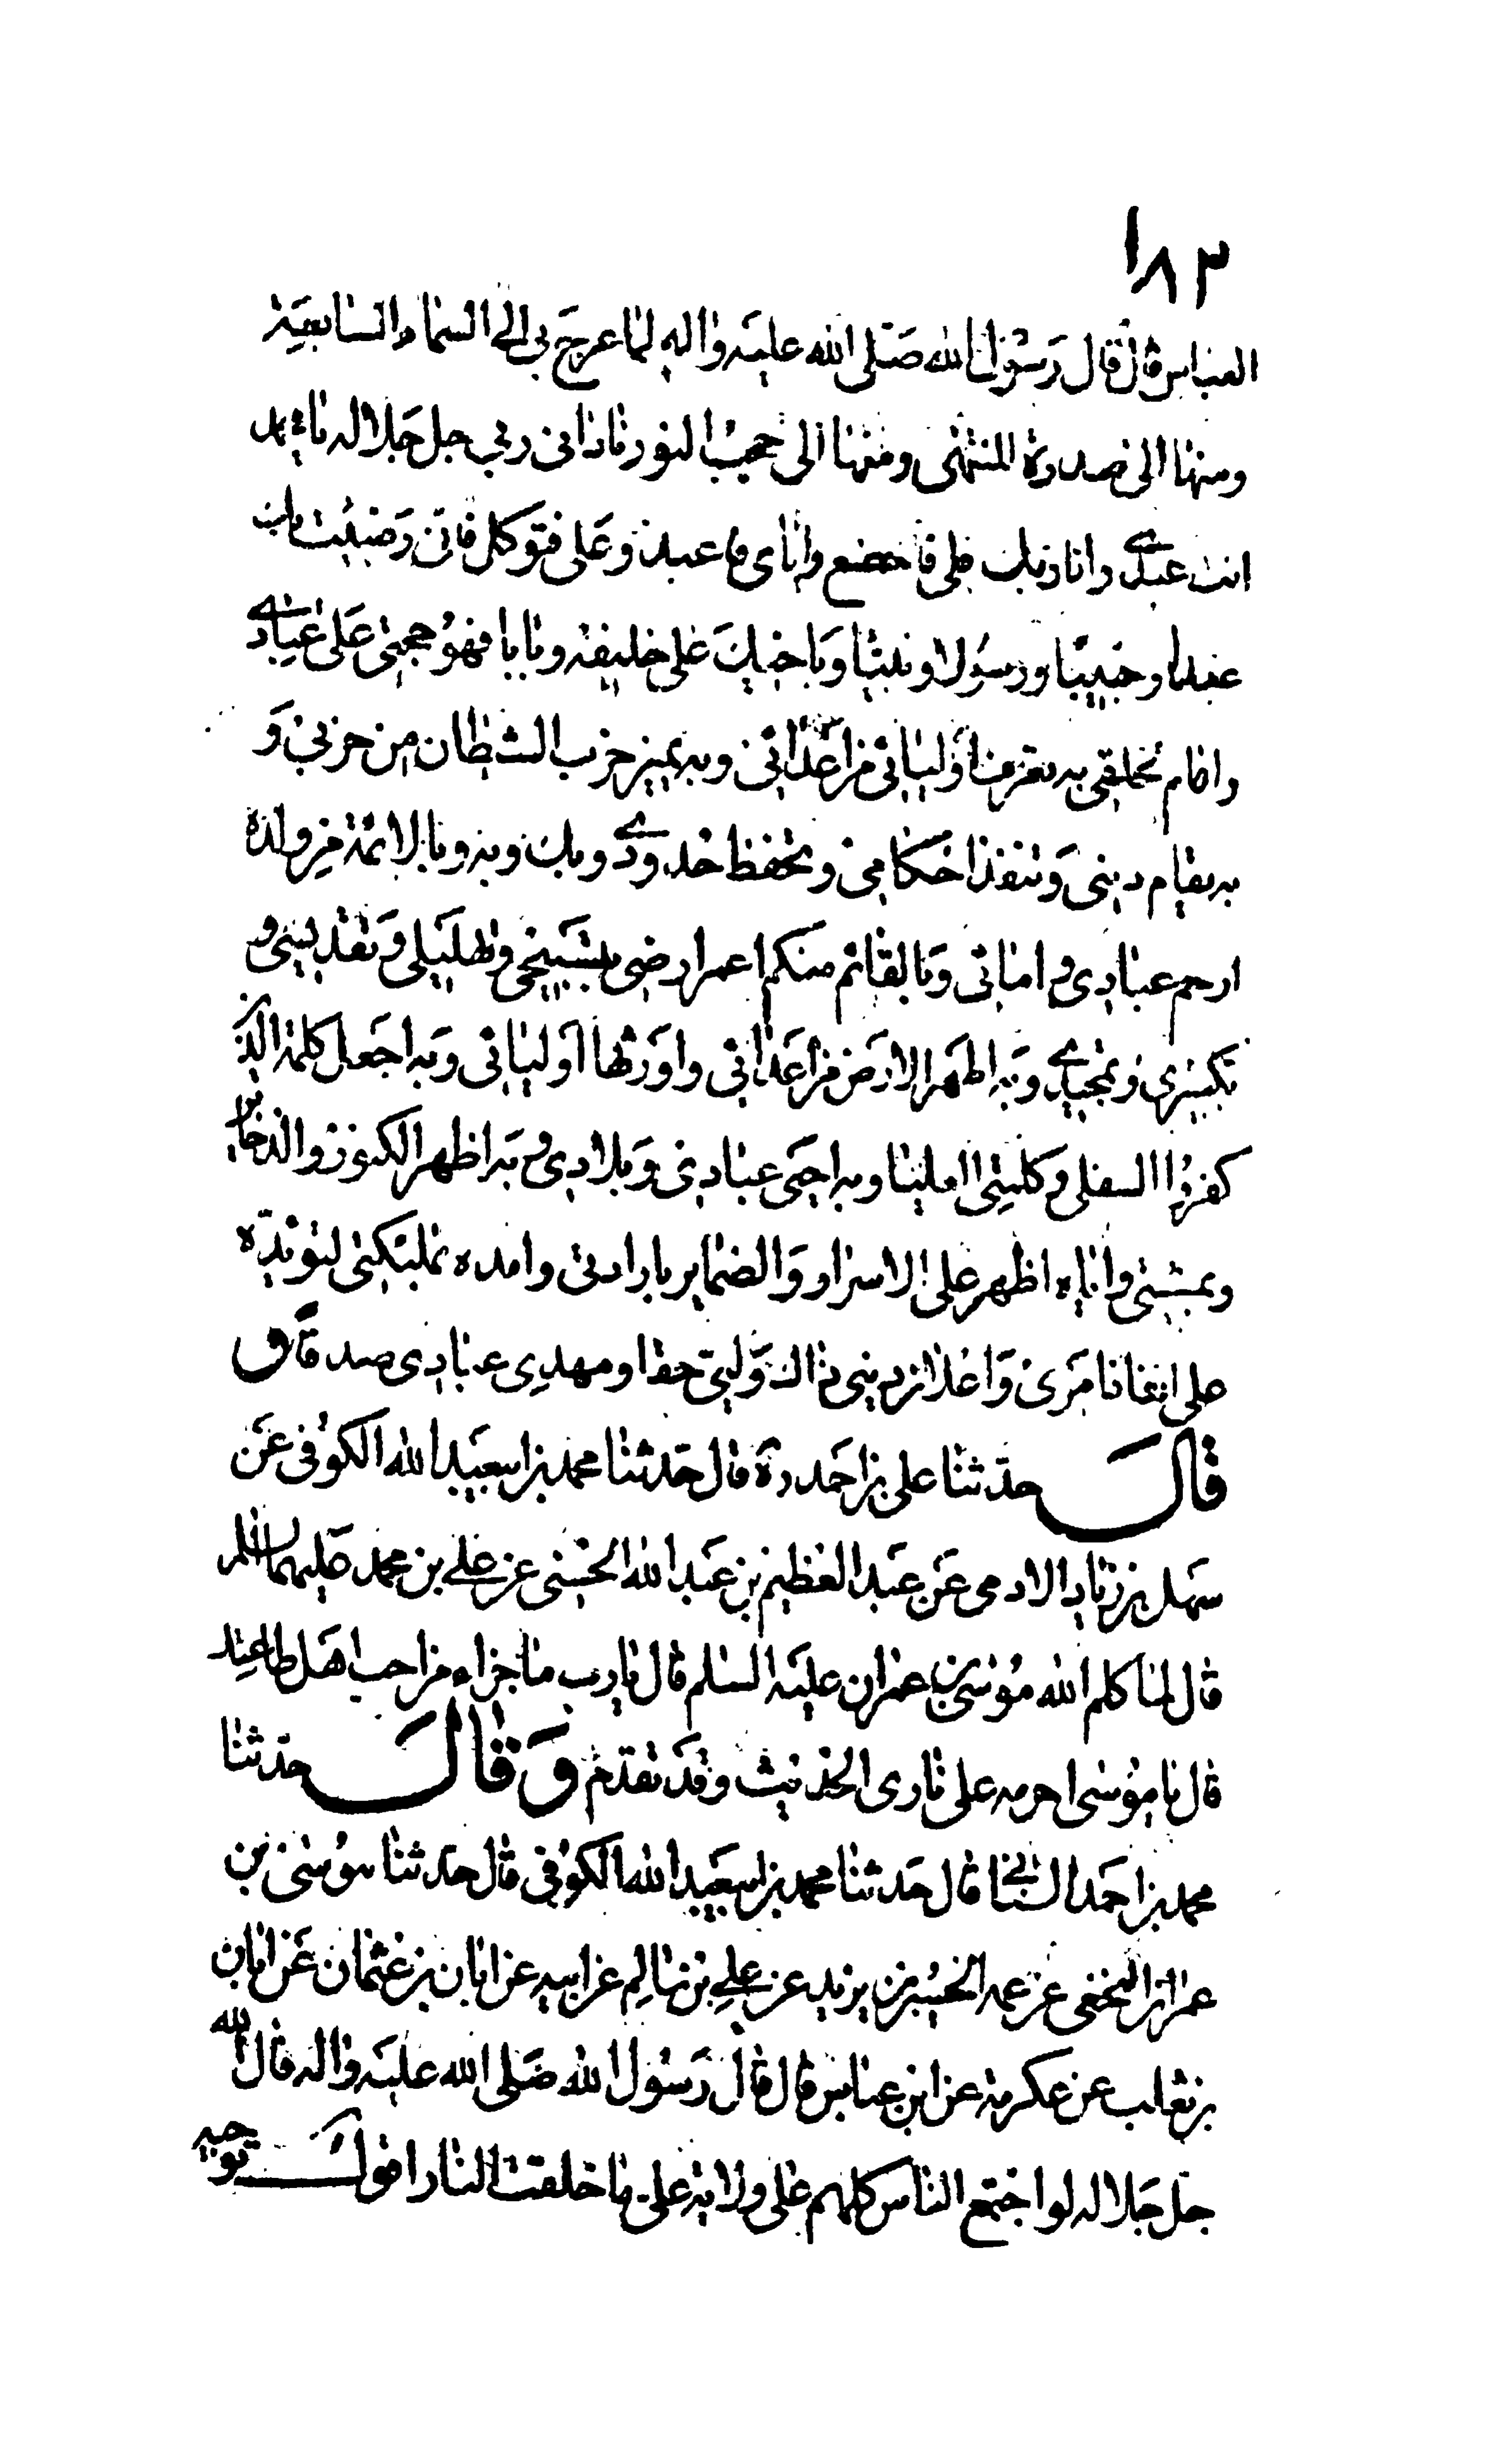 ١٨٣
العباس قال قال رسول الله صلى الله عليه واله لما عرج بي الى السماء السابعة
ومنها الى صدرة المنتهى ومنها الى حجب النور ناداني ربي جل جلاله يا محمد
انت عبدي وانا ربك فلي فاخضع واياى فاعبد وعلى فتوكل فانى رضيت بك
عبدا وحبيبا ورسولا ونبيا وباخيك على خليفة وبابا فهو حجتى على عبادي
وامام لخلقى به يعرف اوليائى من اعدائى وبه يميز حزب الشيطان من حزبى و
به يقام دينى وتنفذ احكامى وتحفظ حدودي وبك وبه وبالائمة من ولده
ارحم عبادى و امائى وبالقائم منكم اعمر ارضى بتسبيحى وتهليلى وتقديسى و
تكبيرى وتمجيدي وبه اطهر الارض من اعدائى واورثها اوليائى وبه اجعل كلمة الذين
كفروا السفلى وكلمتى العليا وبه احيى عبادى وبلادى وبه اظهر الكنوز والذخاير
وبمشيتى واياه اظهر على الاسرار والضماير بارادتى وامده بملئكتى لتويده
على انفاذ امرى واعلان دينى ذاك وليى حقا ومهدى عبادى صدقا ق
قال حدثنا على بن احمد ره قال حدثنا محمد بن ابيعبد الله الكوفى عن
سهل بن زياد الادمى عن عبد العظيم بن عبد الله الحسنى عن على بن محمد عليهما السلم
قال لما كلم الله موسى بن عمران عليه السلم قال يا رب ما جزاء من احب اهل طاعتك
قال يا موسى احرمه على نارى الحديث وقد تقدم وقال حدثنا
محمد بن احمد السنانى قال حدثنا محمد بن ابيعبد الله الكوفى قال حدثنا موسى بن
عمران النخعى عن عمه الحسين بن يزيد عن على بن سالم عن ابيه عن ابان بن عثمان عن ابان
بن تغلب عن عكرمة عن ابن عباس قال قال رسول الله صلى الله عليه واله قال الله
جل جلاله لو اجتمع الناس كلهم على ولاية على ما خلقت النار اقول توحيد